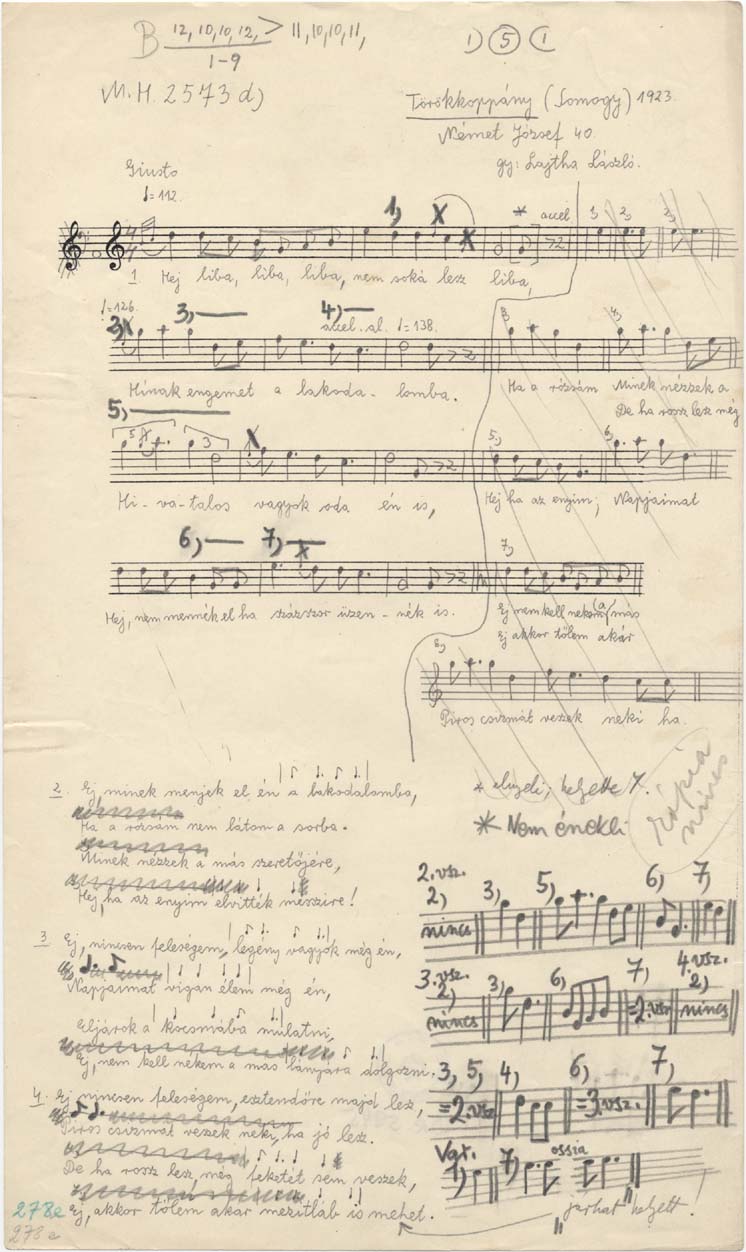 B 12, 10, 10, 12, > 11, 10, 10, 11,
1-9
1) (5) (1
M.H. 2573 d)
Törökkoppány (Somogy) 1923.
Német József 40
gy: Lajtha László.
Giusto
♩= 112.
1) X X * accel 1) 2)
1 Hej liba, liba, liba, nem soká lesz liba,
♩=126.
3) 4)
accel. al. ♩= 138.
3) 4)
Hínak engemet a lakoda- lomba. Ha a rózsám Minek nézzek a
De ha rossz lesz még
5)
5 3 X 5) 6)
Hi-va-talos vagyok oda én is, Hej ha az enyim; Napjaimat
6) 7) 7)
Hej, nem mennék el ha százszor üzen-nék is. Ej nem kell nekem (a) más
Ej akkor tőlem akár
8)
Piros csizmát veszek neki ha.
2. Ej, minek menjek el én a lakodalomba,
Ha a rózsám nem látom a sorba.
Minek nézzek a más szeretőjére,
Hej, ha az enyim elvitték messzire!
* helyette
* Nem énekli
kópia
nincs
3 Ej, nincsen feleségem, legény vagyok még én,
Napjaimat vigan élem még én,
Eljárok a kocsmába mulatni,
Ej, nem kell nekem a más lányára dolgozni.
4. Ej nincsen feleségem, esztendőre majd lesz,
Piros csizmát veszek neki, ha jó lesz.
De ha rossz lesz, még feketét sem veszek,
Ej, akkor tőlem akár mezitláb is mehet.
2.vsz.
2) 3) 5) 6) 7)
nincs
3.vsz.
2) 3) 6) 7) 4.vsz.
2)
nincs =2.vsz nincs
3, 5, 4) 6) 7)
=2.vsz =3.vsz.
Var.
1) 7) ossia
"járhat" helyett!
278e
278 e